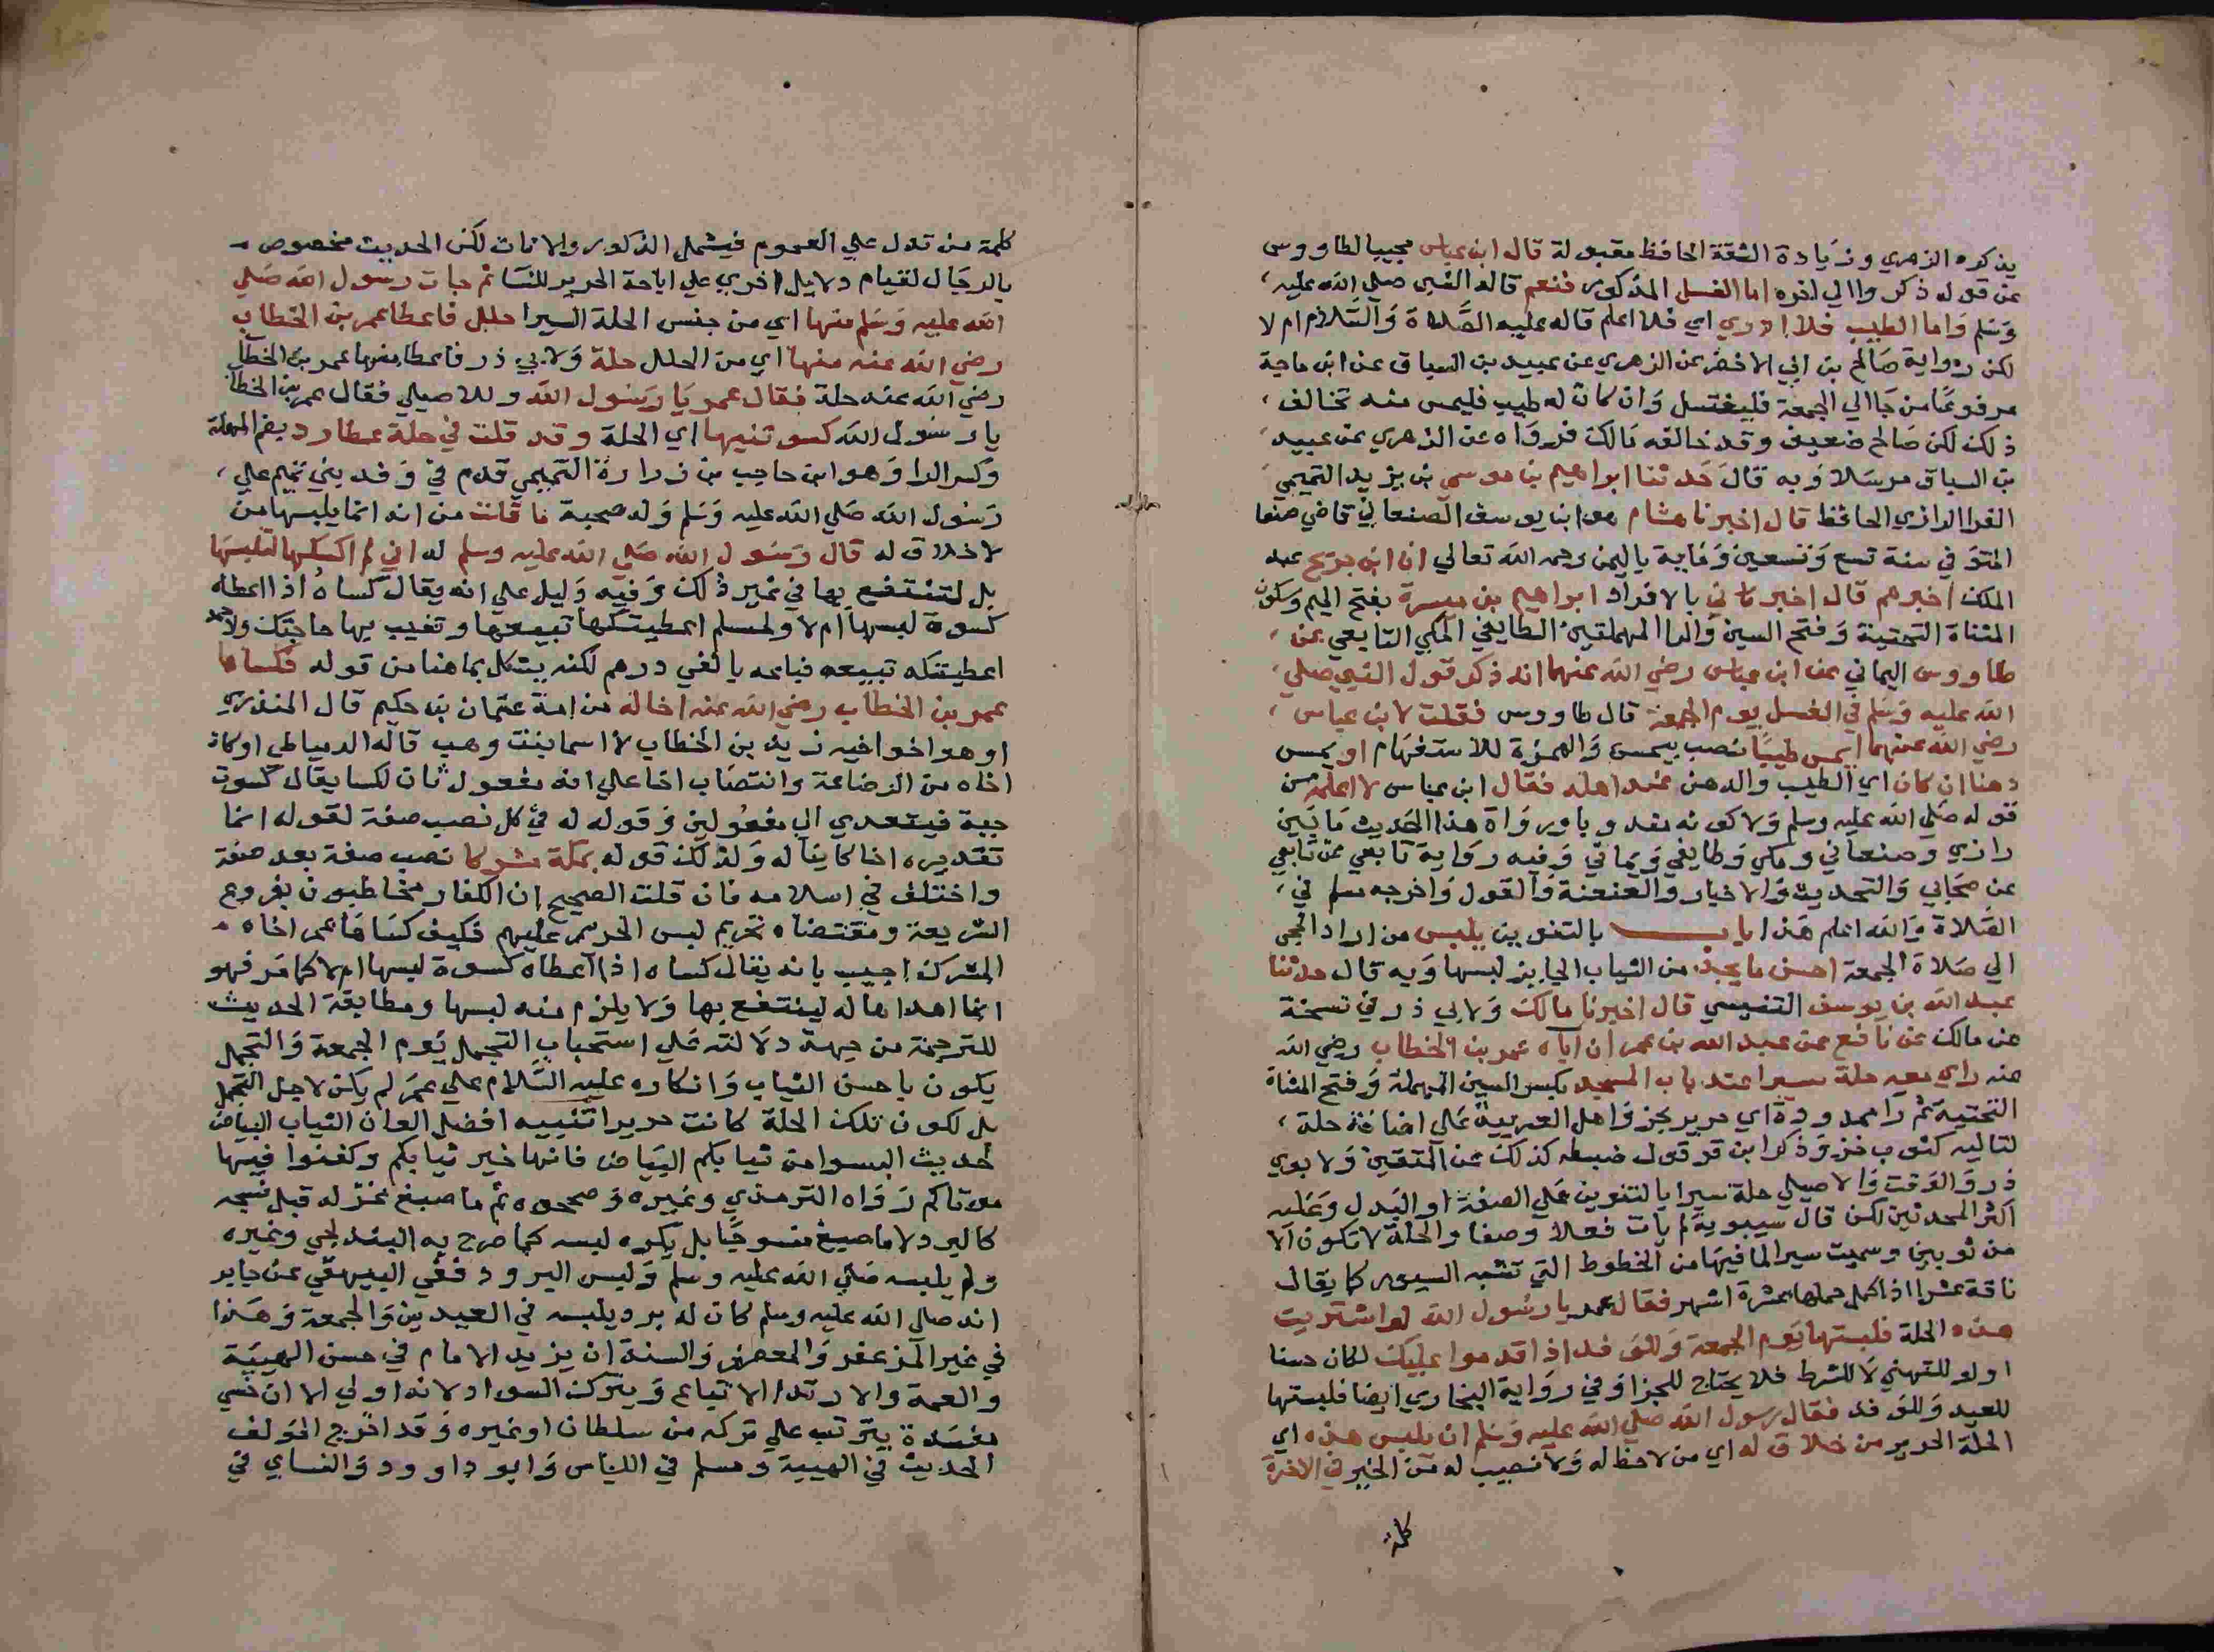 يذكره الزهري وزيادة الثقة الحافظ مقبولة قال ابن عباس مجيبا لطاووس
عن قوله ذكروا الي اخره اما الغسل المذكور فنعم قاله النبي صلي الله عليه
وسلم واما الطيب فلا ادري اي فلا اعلم قاله عليه الصلاة والسلام ام لا
لكن رواية صالح بن ابي الاخضر عن الزهري عن عبيد بن السباق عن ابن ماجة
مرفوعا من جا الي الجمعة فليغتسل وان كان له طيب فليمس منه تخالف
ذلك لكن صالح ضعيف وقد خالفه مالك فرواه عن الزهري عن عبيد
بن السباق مرسلا وبه قال حدثنا ابراهيم بن موسي بن يزيد التميمي
الفرا الرازي الحافظ قال اخبرنا هشام هو ابن يوسف الصنعاني قاضي صنعا
المتوفي سنة تسع وتسعين وماية باليمن رحمه الله تعالي ان ابن جريج عبد
الملك اخبرهم قال اخبرني بالافراد ابراهيم بن ميسرة بفتح الميم وسكون
المثناة التحتية وفتح السين والرا المهملتين الطايفي المكي التابعي عن
طاووس اليماني عن ابن عباس رضي الله عنهما انه ذكر قول النبي صلي
الله عليه وسلم في الغسل يوم الجمعة قال طاووس فقلت لابن عباس
رضي الله عنهما ايمس طيبا نصب بيمس والهمزة للاستفهام او يمس
دهنا ان كان اي الطيب والدهن عند اهله فقال ابن عباس لا اعلمه من
قوله صلي الله عليه وسلم ولا كونه مندوبا ورواة هذا الحديث ما بين
رازي وصنعاني ومكي وطايفي ويماني وفيه رواية تابعي عن تابعي
عن صحابي والتحديث والاخبار والعنعنة والقول واخرجه مسلم في
الصلاة والله اعلم هذا باب بالتنوين يلبس من اراد المجي
الي صلاة الجمعة احسن ما يجد من الثياب الجايز لبسها وبه قال حدثنا
عبد الله بن يوسف التنيسي قال اخبرنا مالك ولابي ذر في نسخة
عن مالك عن نافع عن عبد الله بن عمر ان اباه عمر بن الخطاب رضي الله
عنه راي معه حلة سيرا عند باب المسجد بكسر السين المهملة وفتح المثناة
التحتية ثم را ممدودة اي حرير بجز واهل العربية علي اضافة حلة
لتاليه كثوب خز وذكر ابن قرقول ضبطه كذلك عن المتقنين ولابوي
ذر والوقت والاصيلي حلة سيرا بالتنوين علي الصفة او البدل وعليه
اكثر المحدثين لكن قال سيبويه لم يات فعلا وصفا والحلة لا تكون الا
من ثوبين وسميت سيرا لما فيها من الخطوط التي تشبه السيور كما يقال
ناقة عشرا اذا كمل حملها عشرة اشهر فقال عمر يا رسول الله لو اشتريت
هذه الحلة فلبستها يوم الجمعة وللوفد اذا قدموا عليك لكان حسنا
او لو للتمني لا للشرط فلا يحتاج للجزا وفي رواية البخاري ايضا فلبستها
للعيد وللوفد فقال رسول الله صلي الله عليه وسلم ان يلبس هذه اي
الحلة الحرير من خلاق له اي من لا حظ له ولا نصيب له من الخير في الاخرة
كلمة
كلمة من تدل علي العموم فيشمل الذكور والاناث لكن الحديث مخصوص
بالرجال لقيام دلايل اخري علي اباحة الحرير للنسا ثم جات رسول الله صلي
الله عليه وسلم منها اي من جنس الحلة السيرا حلل فاعطا عمر بن الخطاب
رضي الله عنه منها اي من الحلل حلة ولابي ذر فاعطا منها عمر بن الخطاب
رضي الله عنه حلة فقال عمر يا رسول الله وللاصيلي فقال عمر بن الخطاب
يا رسول الله كسوتنيها اي الحلة وقد قلت في حلة عطارد بضم المهملة
وكسر الرا وهو ابن حاجب بن زرارة التميمي قدم في وفد بني تميم علي
رسول الله صلي الله عليه وسلم وله صحبة ما قلت من انه انما يلبسها من
لا خلاق له قال رسول الله صلي الله عليه وسلم له اني لم اكسكها لتلبسها
بل لتنتفع بها في غير ذلك وفيه دليل علي انه يقال كساه اذا اعطاه
كسوة لبسها ام لا ولمسلم اعطيتكها تبيعها وتصيب بها حاجتك ولاحمد
اعطيتكه تبيعه فباعه بالفي درهم لكنه يشكل بما هنا من قوله فكساها
عمر بن الخطاب رضي الله عنه اخا له من امه عثمان بن حكيم قال المنذري
او هو اخو اخيه زيد بن الخطاب لامه اسما بنت وهب قاله الدمياطي او كان
اخاه من الرضاعة وانتصاب اخا علي انه مفعول ثان لكسا يقال كسوت
جبة فيتعدي الي مفعولين وقوله له في كل نصب صفة لقوله اخا
تقديره اخا كاينا له ولذلك قوله بمكة مشركا نصب صفة بعد صفة
واختلف في اسلامه فان قلت الصحيح ان الكفار مخاطبون بفروع
الشريعة ومقتضاه تحريم لبس الحرير عليهم فكيف كساها عمر اخاه
المشرك اجيب بانه يقال كساه اذا اعطاه كسوة لبسها ام لا كما مر فهو
انما اهداها له لينتفع بها ولا يلزم منه لبسها ومطابقة الحديث
للترجمة من جهة دلالته علي استحباب التجمل يوم الجمعة والتجمل
يكون باحسن الثياب وانكاره عليه السلام علي عمر لم يكن لاجل التجمل
بل لكون تلك الحلة كانت حريرا تنبيه افضل الوان الثياب البياض
لحديث البسوا من ثيابكم البياض فانها خير ثيابكم وكفنوا فيها
موتاكم رواه الترمذي وغيره وصححوه ثم ما صبغ غزله قبل نسجه
كالبرد لا ما صبغ منسوجا بل يكره لبسه كما صرح به البندنيجي وغيره
ولم يلبسه صلي الله عليه وسلم ولبس البرود ففي البيهقي عن جابر
انه صلي الله عليه وسلم كان له برد يلبسه في العيدين والجمعة وهذا
في غير المزعفر والمعصفر والسنة ان يزيد الامام في حسن الهيية
والعمة والارتدا الاتباع ويترك السواد لانه اولي الا ان خشي
مفسدة يترتب علي تركه من سلطان او غيره وقد اخرج المولف
الحديث في الهيبة ومسلم في اللباس وابو داوود والنساي في